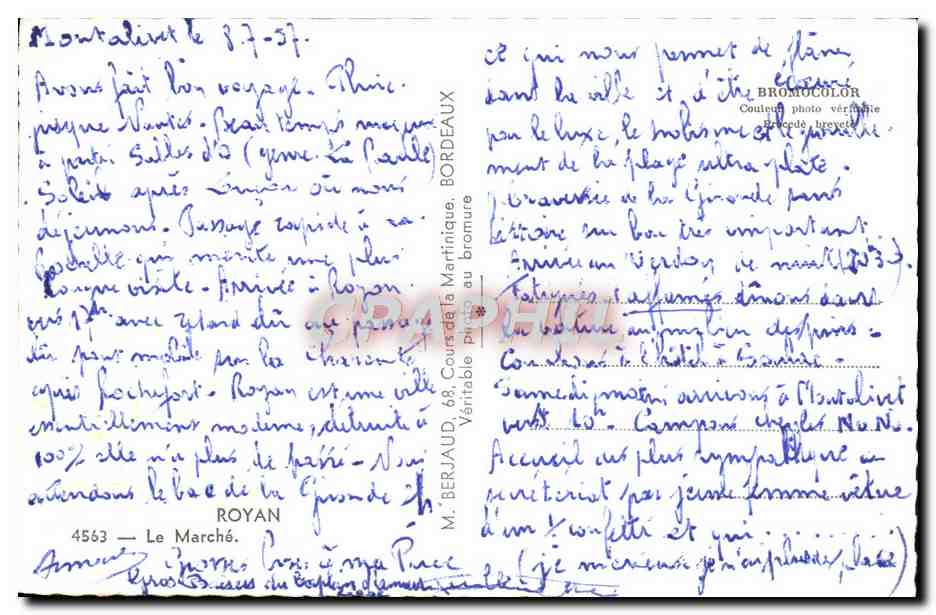 Montalivet le 8.7-57.
Avons fait bon voyage. Pluie
jusque Nantes. Beau temps
à partir Sables d'O (genre La Baule)
Soleil après Luçon où nous
déjeunons. Passage rapide à La
Rochelle qui mérite une plus
longue visite. Arrivée à Royan
vers 17h avec retard dû au passage
du pont mobile sur la Charente
après Rochefort. Royan est une ville
entièrement moderne, détruite à
100% elle n'a plus de passé. Nous
attendons le bac de la Gironde 2h
ROYAN
4563 — Le Marché.
Grosses bises à ma Puce
Gros Baisers du
M. BERJAUD, 68, Cours de la Martinique, BORDEAUX
Véritable photo au bromure
BROMOCOLOR
Couleur photo véritable
Procédé breveté
ce qui nous permet de flâner
dans la ville et d'être écœuré
par le luxe, le snobisme et le
de la plage ultra plate.
Traversée de la Gironde sans
histoire sur bac très important.
Arrivée au Verdon de nuit
Fatigués & affamés dînons dans
la voiture au milieu des pins.
Couchons à l'hôtel à
Samedi matin arrivons à Montalivet
vers 10h. Campons chez les Na Na.
Accueil des plus sympathique au
secrétariat par jeune femme vêtue
d'un 1/2 confetti et qui ..........
(je m'excuse je n'ai plus de place)
GRAPHII